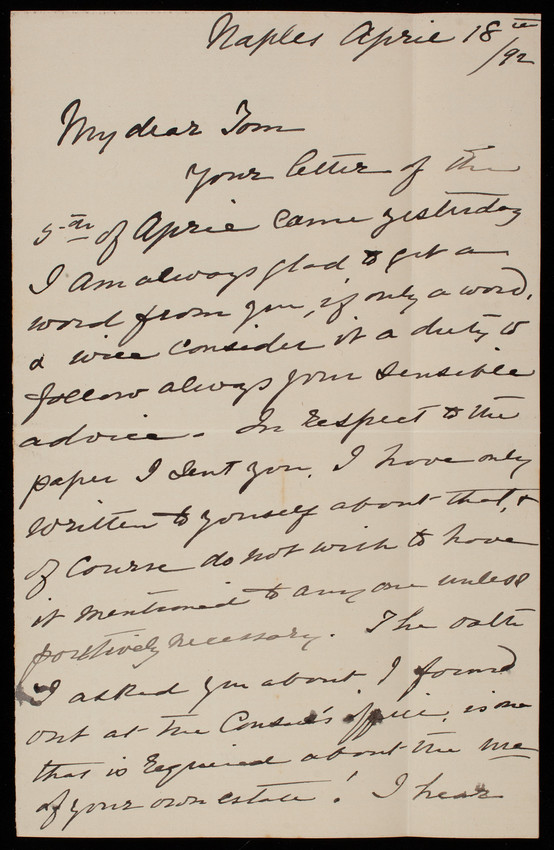 Naples April 18th
/92
My dear Tom
Your letter of the
5th of April came yesterday
I am always glad to get a
word from you, if only a word,
& will consider it a duty to
follow always your sensible
advice. In respect to the
paper I sent you, I have only
written to yourself about that, &
of course do not wish to have
it mentioned to any one unless
positively necessary. The oath
I asked you about I found
out at the Consul's office, is one
that is required about the
of your own estate! I hear